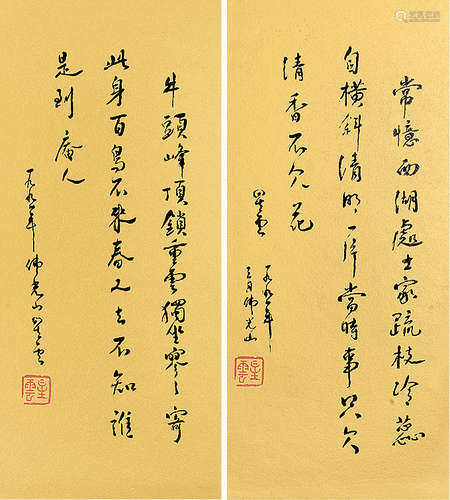 常憶西湖處士家疏枝冷蕊
自橫斜清明一片當時事只欠
清香不欠花
星雲
一九九一年
三月佛光山
星雲
牛頭峰頂鎖重雲獨坐寥々寄
此身百鳥不來春又去不知誰
是到庵人
一九九一年佛光山星雲
星雲